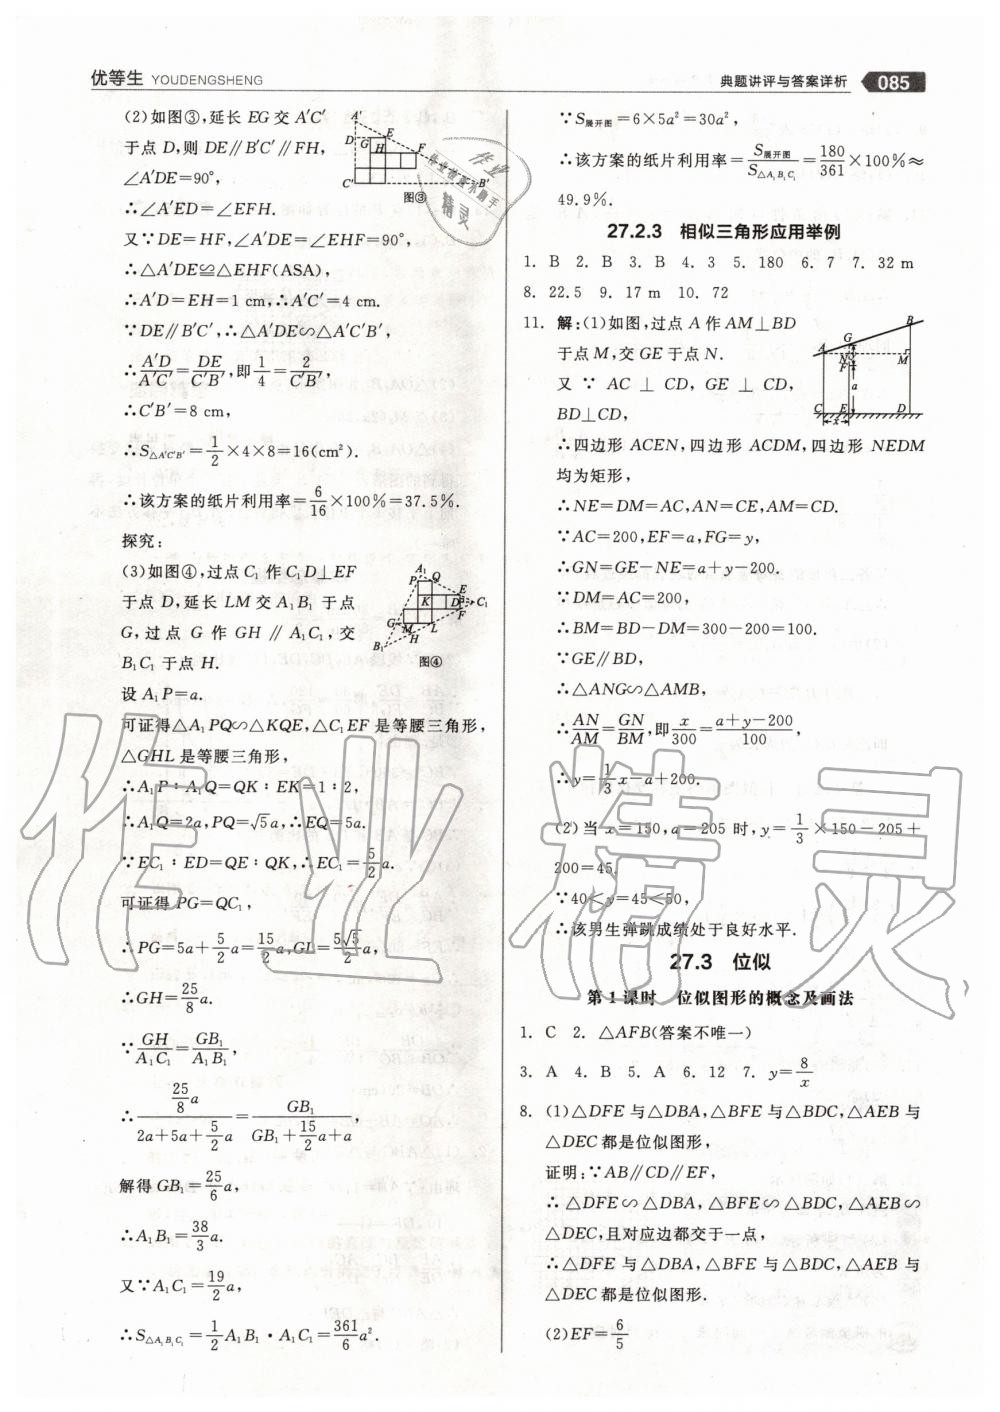 优等生 YOUDENGSHENG
典题讲评与答案详析 085
(2)如图③,延长 EG 交 A′C′
于点 D,则 DE∥B′C′∥FH,
∠A′DE=90°,
∴∠A′ED=∠EFH.
又∵DE=HF,∠A′DE=∠EHF=90°,
∴△A′DE≌△EHF(ASA),
∴A′D=EH=1 cm,∴A′C′=4 cm.
∵DE∥B′C′,∴△A′DE∽△A′C′B′,
∴A′D/A′C′=DE/C′B′,即1/4=2/C′B′,
∴C′B′=8 cm,
∴S△A′C′B′=1/2×4×8=16(cm²).
∴该方案的纸片利用率=6/16×100%=37.5%.
探究:
(3)如图④,过点 C₁ 作 C₁D⊥EF
于点 D,延长 LM 交 A₁B₁ 于点
G,过点 G 作 GH∥A₁C₁,交
B₁C₁ 于点 H.
设 A₁P=a.
可证得△A₁PQ∽△KQE,△C₁EF 是等腰三角形,
△GHL 是等腰三角形,
∴A₁P∶A₁Q=QK∶EK=1∶2,
∴A₁Q=2a,PQ=√5a,∴EQ=5a.
∵EC₁∶ED=QE∶QK,∴EC₁=5/2a.
可证得 PG=QC₁,
∴PG=5a+5/2a=15/2a,GL=5√5/2a,
∴GH=25/8a.
∵GH/A₁C₁=GB₁/A₁B₁,
∴(25/8a)/(2a+5a+5/2a)=GB₁/(GB₁+15/2a+a)
解得GB₁=25/6a,
∴A₁B₁=38/3a.
又∵A₁C₁=19/2a,
∴S△A₁B₁C₁=1/2A₁B₁·A₁C₁=361/6a².
图③
图④
∵S展开图=6×5a²=30a²,
∴该方案的纸片利用率=S展开图/S△A₁B₁C₁=180/361×100%≈
49.9%.
27.2.3 相似三角形应用举例
1. B 2. B 3. B 4. 3 5. 180 6. 7 7. 32 m
8. 22.5 9. 17 m 10. 72
11. 解:(1)如图,过点 A 作 AM⊥BD
于点 M,交 GE 于点 N.
又∵AC⊥CD,GE⊥CD,
BD⊥CD,
∴四边形 ACEN,四边形 ACDM,四边形 NEDM
均为矩形,
∴NE=DM=AC,AN=CE,AM=CD.
∵AC=200,EF=a,FG=y,
∴GN=GE-NE=a+y-200.
∵DM=AC=200,
∴BM=BD-DM=300-200=100.
∵GE∥BD,
∴△ANG∽△AMB,
∴AN/AM=GN/BM,即x/300=(a+y-200)/100,
∴y=1/3x-a+200.
(2)当 x=150,a=205 时,y=1/3×150-205+
200=45.
∵40<y=45<50,
∴该男生弹跳成绩处于良好水平.
27.3 位似
第1课时 位似图形的概念及画法
1. C 2. △AFB(答案不唯一)
3. A 4. B 5. A 6. 12 7. y=8/x
8. (1)△DFE 与△DBA,△BFE 与△BDC,△AEB 与
△DEC都是位似图形,
证明:∵AB∥CD∥EF,
∴△DFE∽△DBA,△BFE∽△BDC,△AEB∽
△DEC,且对应边都交于一点,
∴△DFE 与△DBA,△BFE 与△BDC,△AEB 与
△DEC都是位似图形.
(2)EF=6/5
作业精灵